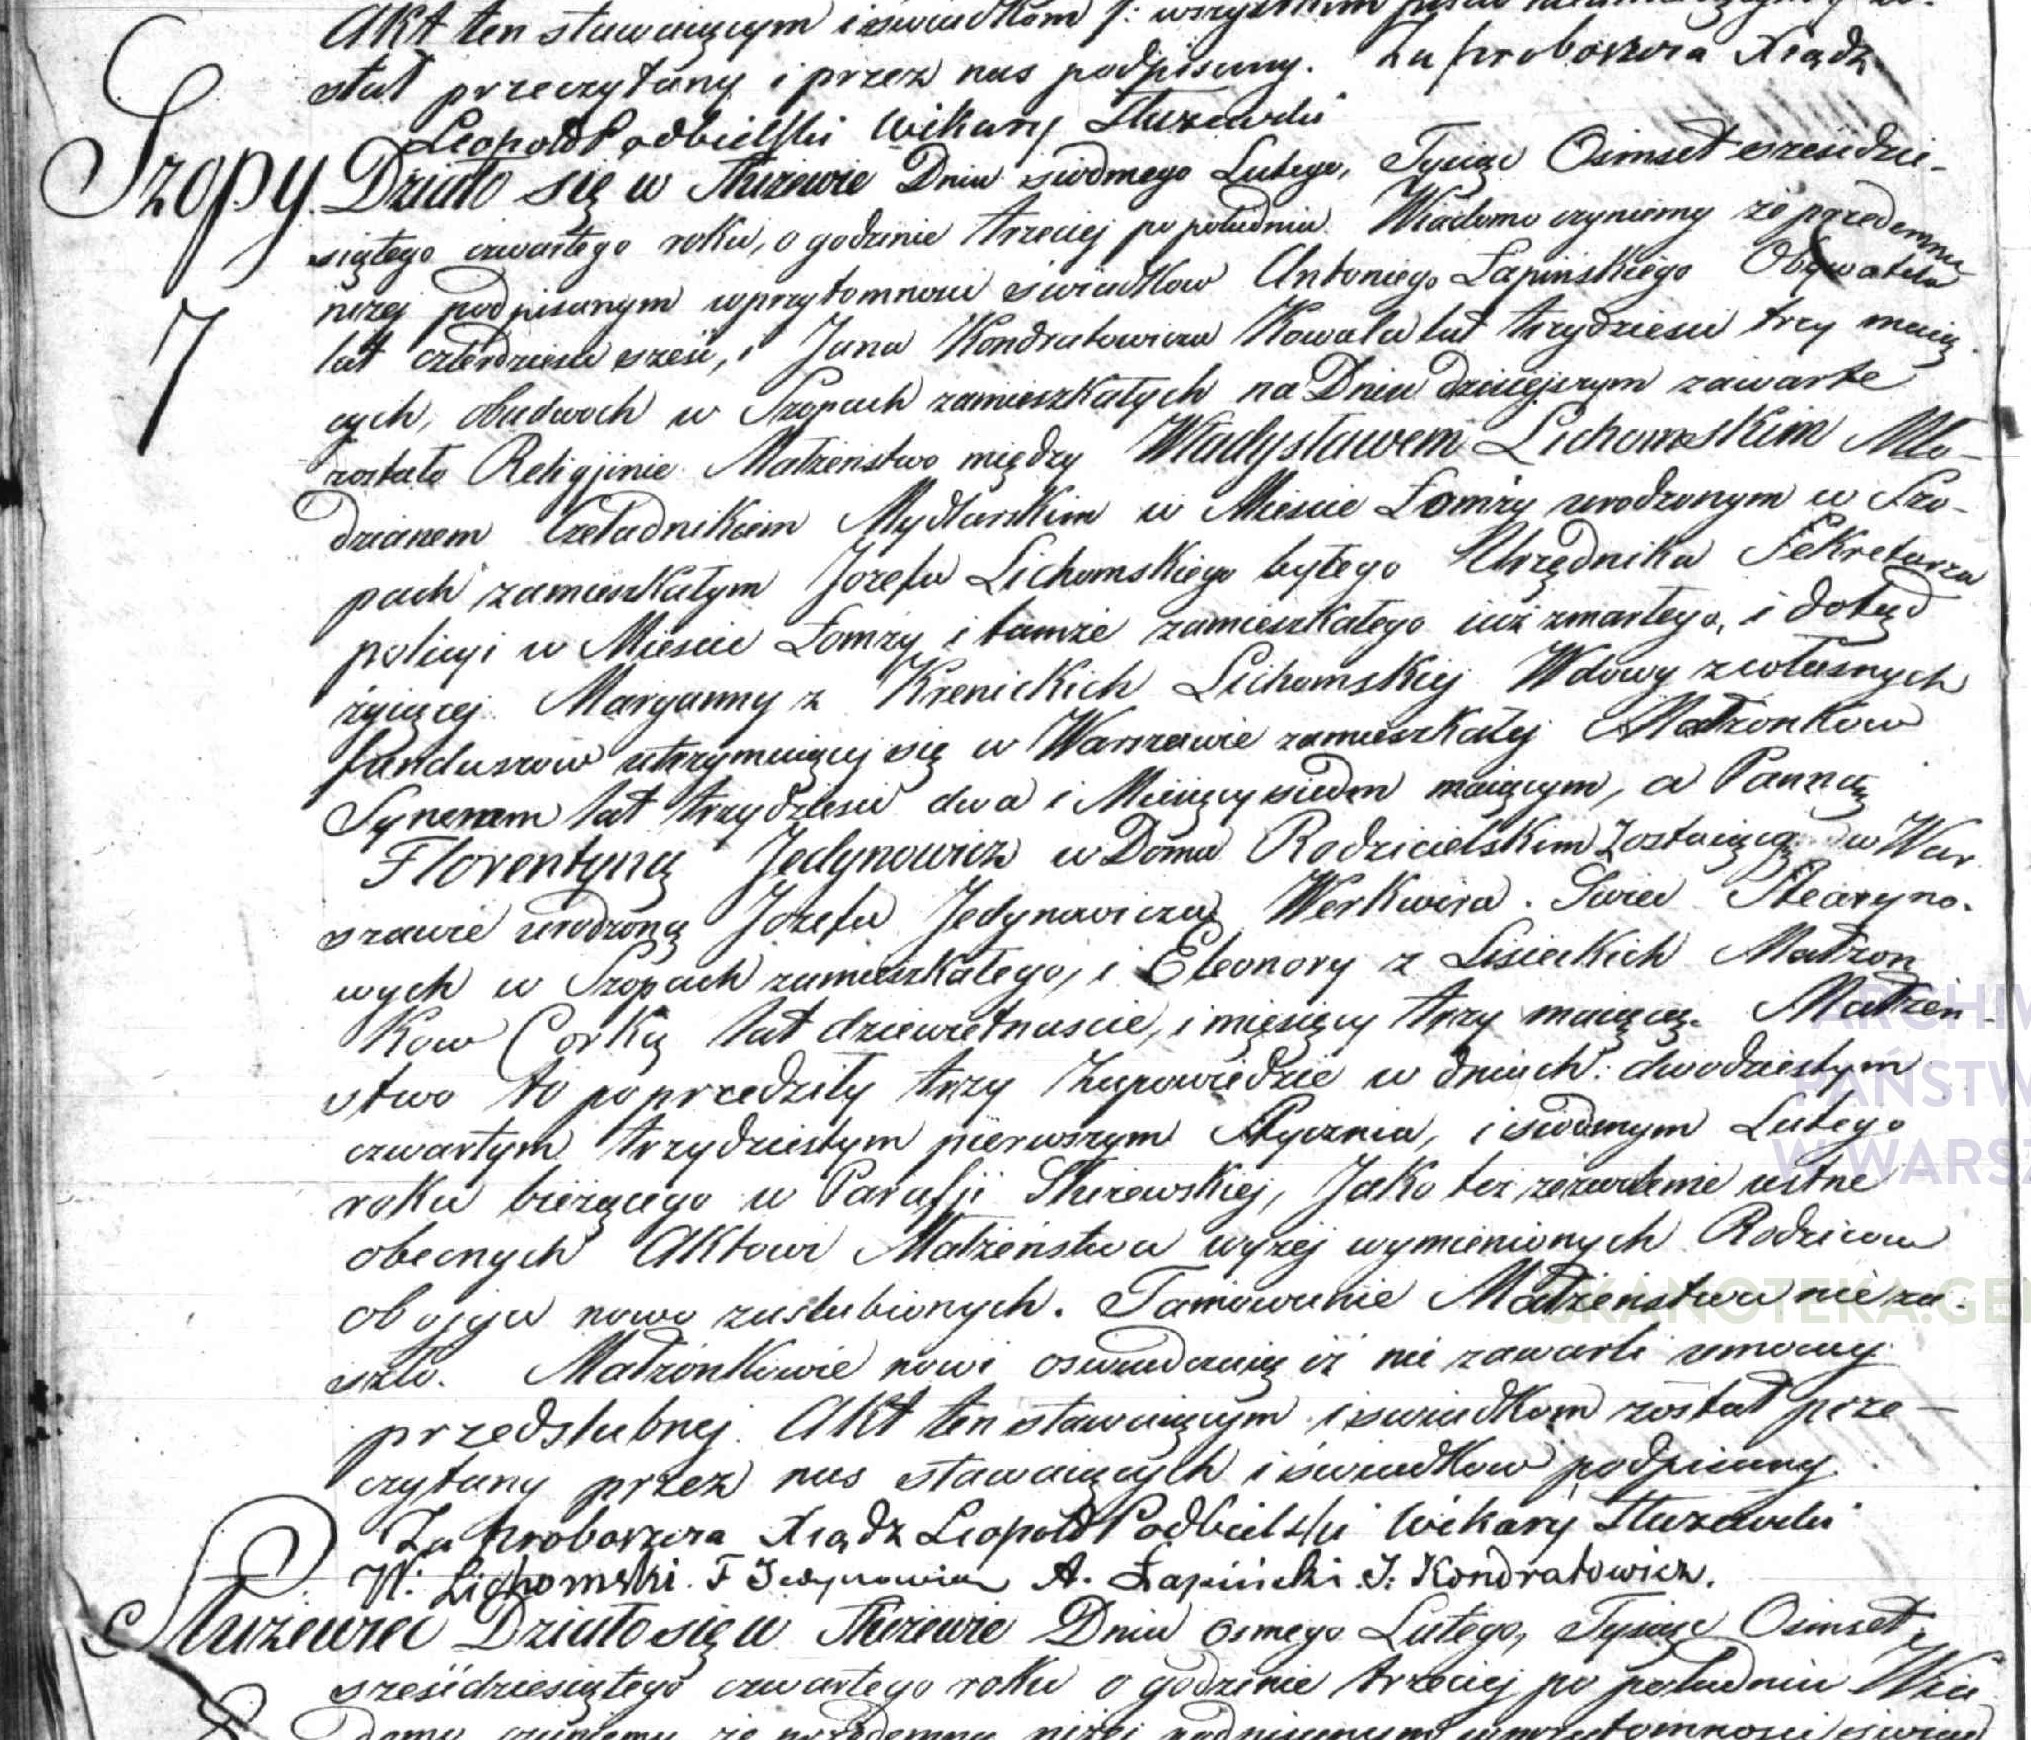 Akt ten stawaiącym i świadkom /: wszystkim
stał przeczytany i przez nas podpisany. Za proboszcza Xiądz
Leopold Podbielski Wikary Służewski
Szopy. Działo się w Służewie Dnia siodmego Lutego, Tysiąc Osimset sześcdzie-
siątego czwartego roku, o godzinie trzeciej po południu Wiadomo czyniemy że przedemną
7
niżej podpisanym wprzytomności świadkow Antoniego Łapińskiego Obywatela
lat czterdzieści sześć, i Jana Kondratowicza Kowala lat trzydzieści trzy maią
cych, obudwoch w Szopach zamieszkałych na Dniu dzisiejszym zawarte
zostało Religijnie Małżeństwo między Władysławem Lichomskim Mło-
dzianem Czeladnikiem Mydlarskim w Mieście Łomży urodzonym w Szo-
pach zamieszkałym Jozefa Lichomskiego byłego Urzędnika Sekretarza
policyi w Mieście Łomży i tamże zamieszkałego już zmarłego, i dotąd
żyiącej Maryanny z Krenickich Lichomskiej Wdowy z własnych
funduszow utrzymuiącej się w Warszawie zamieszkałej Małżonkow
Synem lat trzydzieści dwa i Miesięcy siedm maiącym, a Panną
Florentyną Jedynowicz w Domu Rodzicielskim zostaiącą w War
szawie urodzoną Jozefa Jedynowicza Werkwira Swiec Stearyno-
wych w Szopach zamieszkałego, i Eleonory z Lisieckich Małżon
kow Corką lat dziewietnascie, i miesięcy trzy maiącą. Małżen-
stwo to poprzedziły trzy Zapowiedzie w dniach: dwodziestym
czwartym trzydziestym pierwszym Stycznia, i siodmym Lutego
roku bieżącego w Parafji Służewskiej, Jako też zezwolenie ustne
obecnych Aktowi Małżeństwa wyżej wymienionych Rodzicow
obojga nowo zaslubionych. Tamowanie Małżenstwa nieza-
szło. Małżonkowie nowi oswiadczaią iż nie zawarli umowy
przedslubnej. Akt ten stawaiącym i swiadkom został prze-
czytany przez nas stawaiących i świadkow podpisany.
Za proboszcza Xiądz Leopold Podbielski Wikary Służewski
W: Lichomski. F Jedynowicz A. Łapiński. J: Kondratowicz.
Służewiec Działo się w Służewie Dnia osmego Lutego, Tysiąc Osimset
sześćdziesiątego czwartego roku o godzinie trzeciej po południu Wia
8 domo czyniemy że przedemną niżej podpisanym wprzytomności świad
ARCHIW
PAŃSTW
W WARSZ
SKANOTEKA.GE